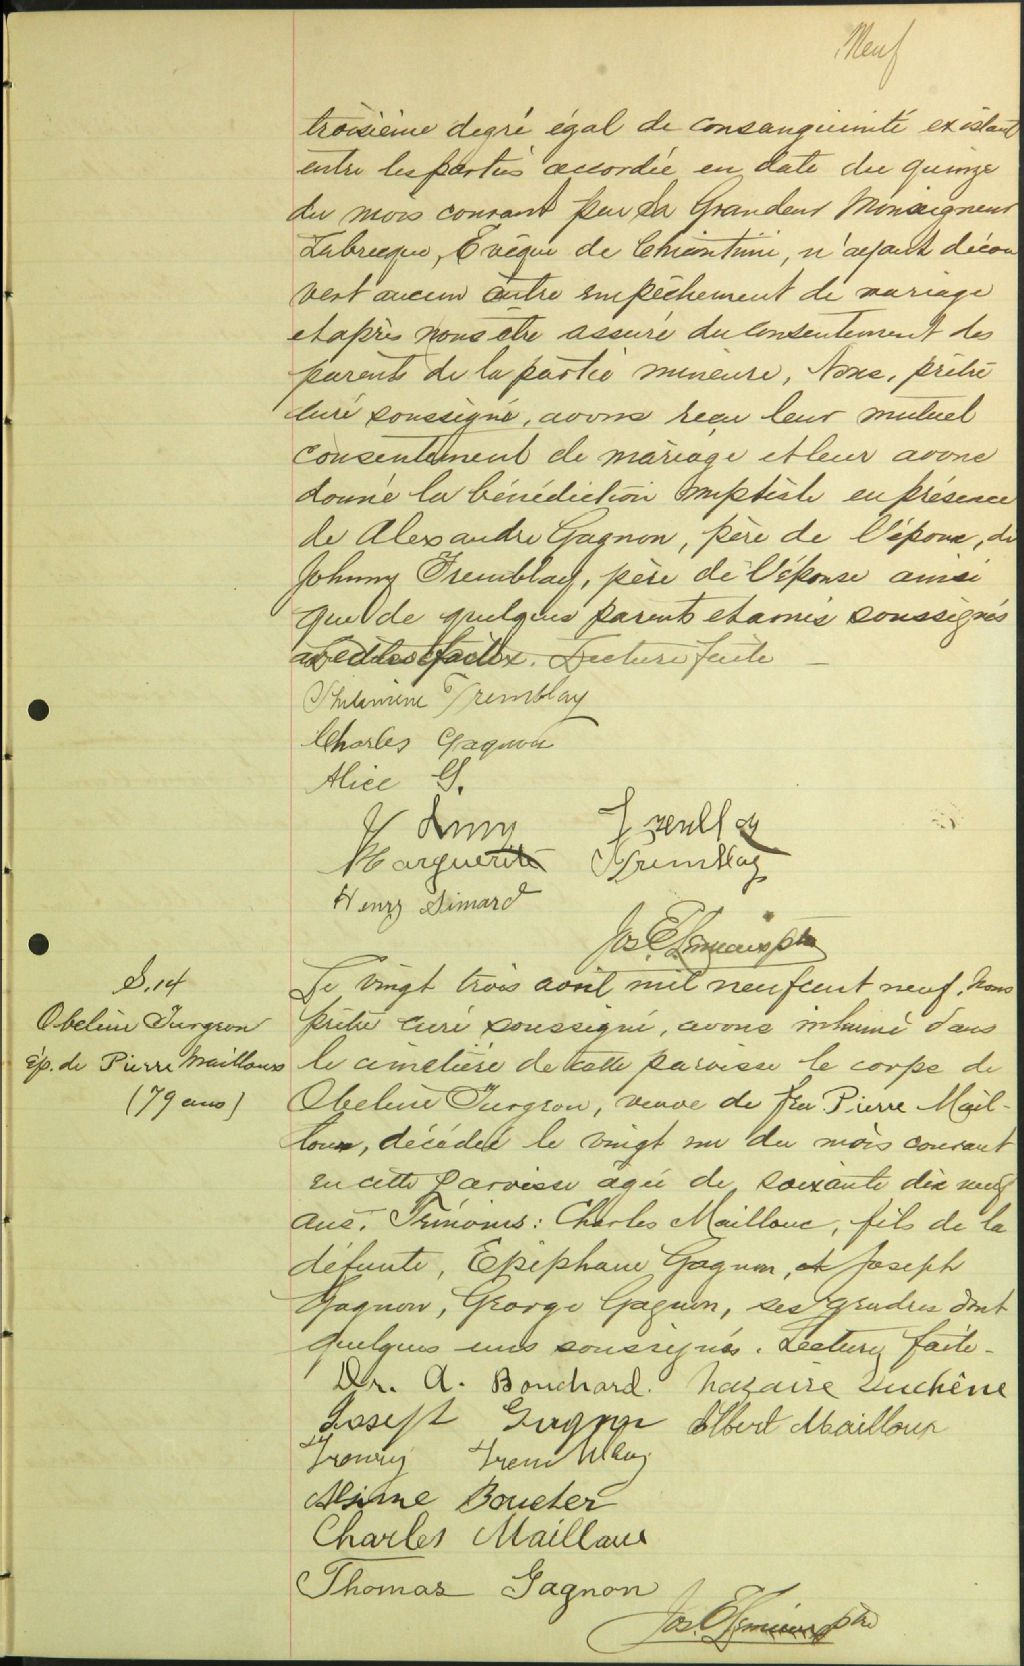 Neuf
troisième degré égal de consanguinité existant
entre les parties accordée en date du quinze
du mois courant par Sa Grandeur Monseigneur
Labrecque, Evêque de Chicoutimi, n'ayant décou
vert aucun autre empêchement de mariage
et après nous être assuré du consentement des
parents de la partie mineure, Nous, prêtre
curé soussigné, avons reçu leur mutuel
consentement de mariage et leur avons
donné la bénédiction nuptiale en présence
de Alexandre Gagnon, père de l'époux, de
Johnny Tremblay, père de l'épouse ainsi
que de quelques parents et amis soussignés
Lecture faite
Philomène Tremblay
Charles Gagnon
Alice G.
Tremblay
Marguerite Tremblay
Henry Simard
Jos. E. Lemieux ptre
S. 14
Obeline Turgeon
ép. de Pierre Mailloux
(79 ans)
Le vingt trois avril mil neuf cent neuf, Nous
prêtre curé soussigné, avons inhumé dans
le cimetière de cette paroisse le corps de
Obeline Turgeon, veuve de feu Pierre Mail-
loux, décédée le vingt un du mois courant
en cette paroisse agée de soixante dix neuf
ans. Témoins: Charles Mailloux, fils de la
défunte, Epiphane Gagnon, et Joseph
Gagnon, George Gagnon, ses gendres dont
quelques uns soussignés. Lecture faite-
Dr. A. Bouchard. Nazaire Duchêne
Joseph Gagnon Albert Mailloux
Tremblay
Boucher
Charles Maillaux
Thomas Gagnon
Jos. E. Lemieux ptre